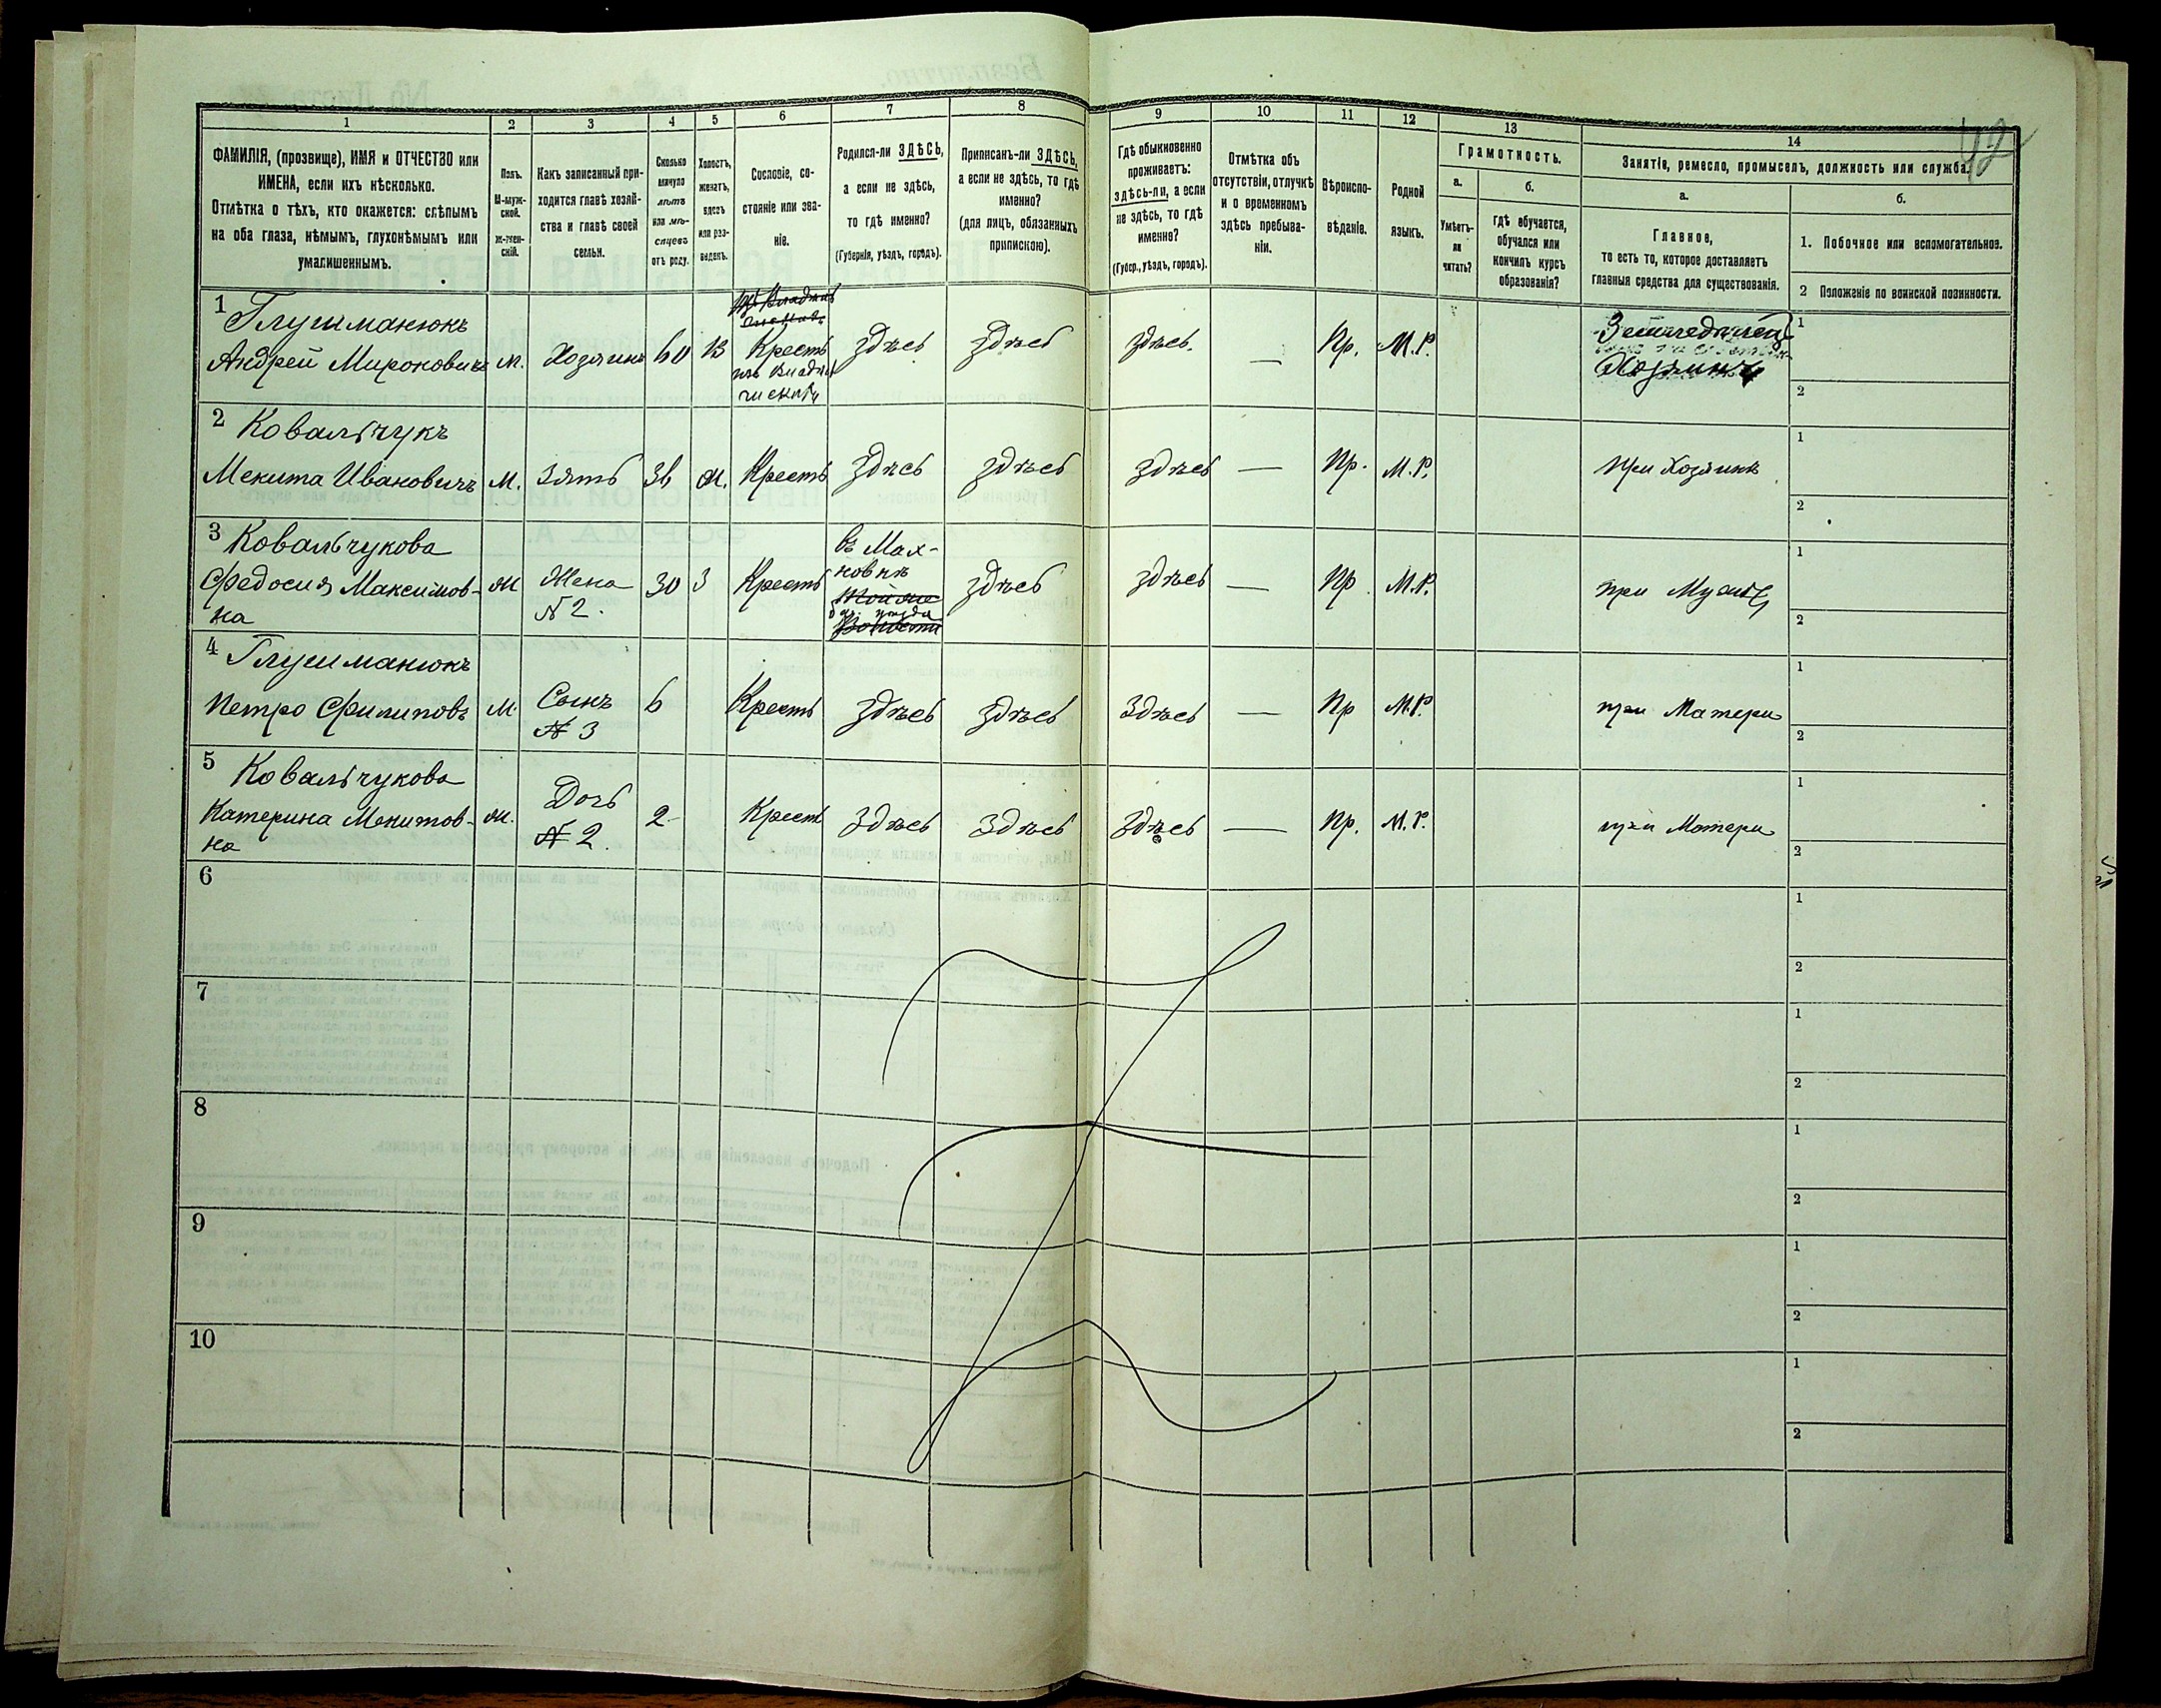 42
1
2
3
4
5
6
7
8
9
10
11
12
13
14
ФАМИЛІЯ, (прозвище), ИМЯ и ОТЧЕСТВО или
ИМЕНА, если ихъ нѣсколько.
Отмѣтка о тѣхъ, кто окажется: слѣпымъ
на оба глаза, нѣмымъ, глухонѣмымъ или
умалишеннымъ.
Полъ.
М-муж-
ской.
Ж-жен-
скій.
Какъ записанный при-
ходится главѣ хозяй-
ства и главѣ своей
семьи.
Сколько
минуло
лѣтъ
или мѣ-
сяцевъ
отъ роду.
Холостъ,
женатъ,
вдовъ
или раз-
веденъ.
Сословіе, со-
стояніе или зва-
ніе.
Родился-ли ЗДѢСЬ,
а если не здѣсь,
то гдѣ именно?
(Губернія, уѣздъ, городъ).
Приписанъ-ли ЗДѢСЬ,
а если не здѣсь, то гдѣ
именно?
(для лицъ, обязанныхъ
припискою).
Гдѣ обыкновенно
проживаетъ:
здѣсь-ли, а если
не здѣсь, то гдѣ
именно?
(Губер., уѣздъ, городъ).
Отмѣтка объ
отсутствіи, отлучкѣ
и о временномъ
здѣсь пребыва-
ніи.
Вѣроиспо-
вѣданіе.
Родной
языкъ.
Грамотность.
а.
б.
Умѣетъ-
ли
читать?
Гдѣ обучается,
обучался или
кончилъ курсъ
образованія?
Занятіе, ремесло, промыселъ, должность или служба.
а.
б.
Главное,
то есть то, которое доставляетъ
главныя средства для существованія.
1. Побочное или вспомогательное.
2 Положеніе по воинской повинности.
1 Глушманюкъ
Андрей Мироновичъ м. Хозяинъ 60 В Кресть
изъ Владѣль
ческихъ
здѣсь здѣсь здѣсь. — Пр. М.Р. Земледѣлецъ
Хозяинъ
1
2
2 Ковальчукъ
Мекита Ивановичъ М. Зять 36 Ж. Кресть здѣсь здѣсь здѣсь — Пр. М.Р. при Хозяинѣ
1
2
3 Ковальчукова
Федосия Максимов-
на
Ж Жена
N 2.
30 З Кресть
въ Мах-
новкѣ
здѣсь здѣсь — Пр. М.Р. при Мужѣ
1
2
4 Глушманюкъ
Петро Филиповъ М Сынъ
N 3
6 Кресть здѣсь здѣсь Здѣсь — Пр М.Р. при Матери
1
2
5 Ковальчукова
Катерина Мекитов-
на
Ж. Дочь
N 2.
2 Кресть Здѣсь Здѣсь Здѣсь — Пр. М.Р. при Матери
1
2
6
1
2
7
1
2
8
1
2
9
1
2
10
1
2